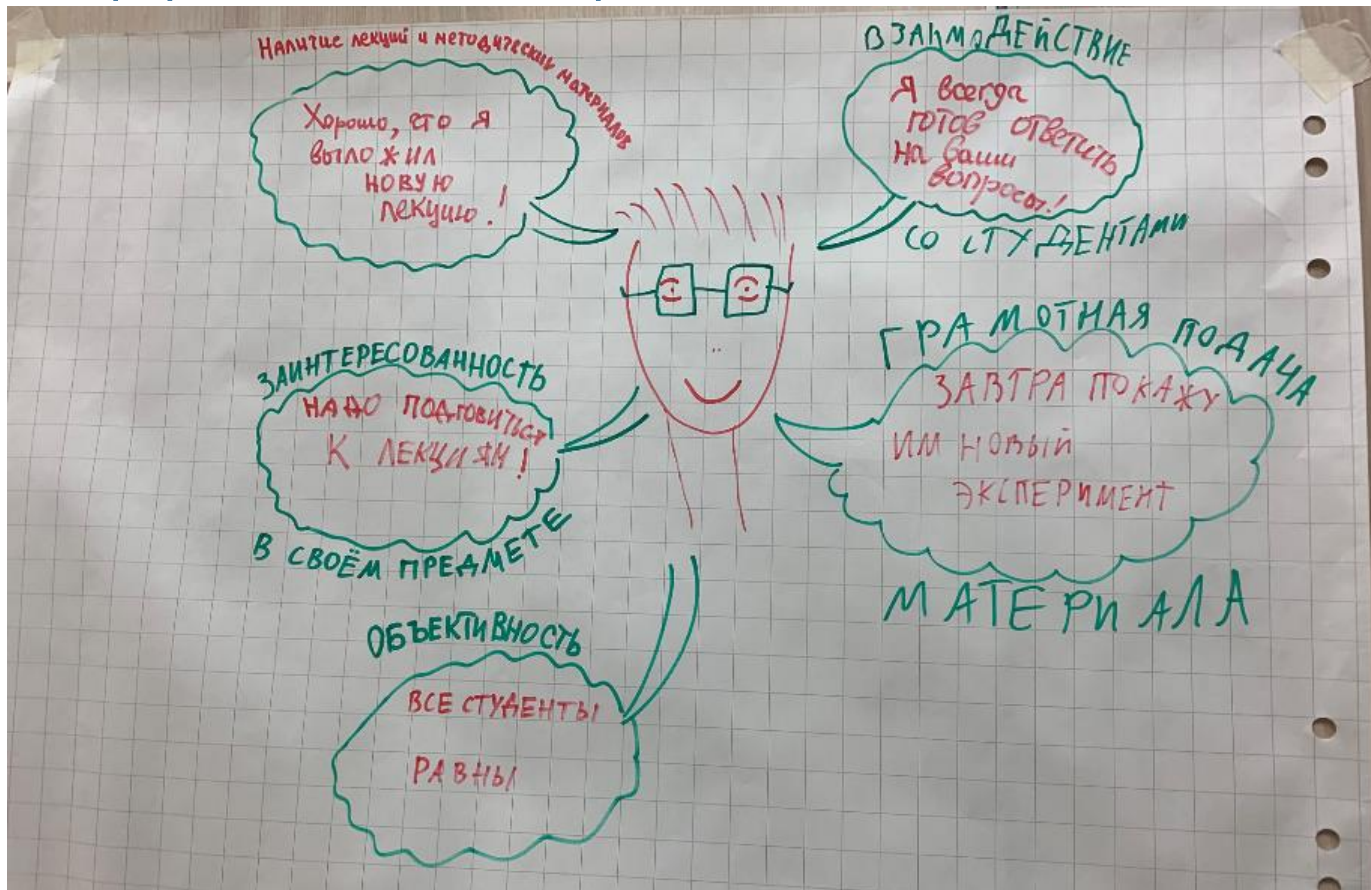 Наличие лекций и методических материалов
Хорошо, что я
выложил
новую
лекцию!
ВЗАИМОДЕЙСТВИЕ
Я всегда
готов ответить
на ваши
вопросы!
СО СТУДЕНТАМИ
ЗАИНТЕРЕСОВАННОСТЬ
НАДО ПОДГОВИТЬСЯ
К ЛЕКЦИЯМ!
В СВОЁМ ПРЕДМЕТЕ
ГРАМОТНАЯ ПОДАЧА
ЗАВТРА ПОКАЖУ
ИМ НОВЫЙ
ЭКСПЕРИМЕНТ
МАТЕРИАЛА
ОБЪЕКТИВНОСТЬ
ВСЕ СТУДЕНТЫ
РАВНЫ